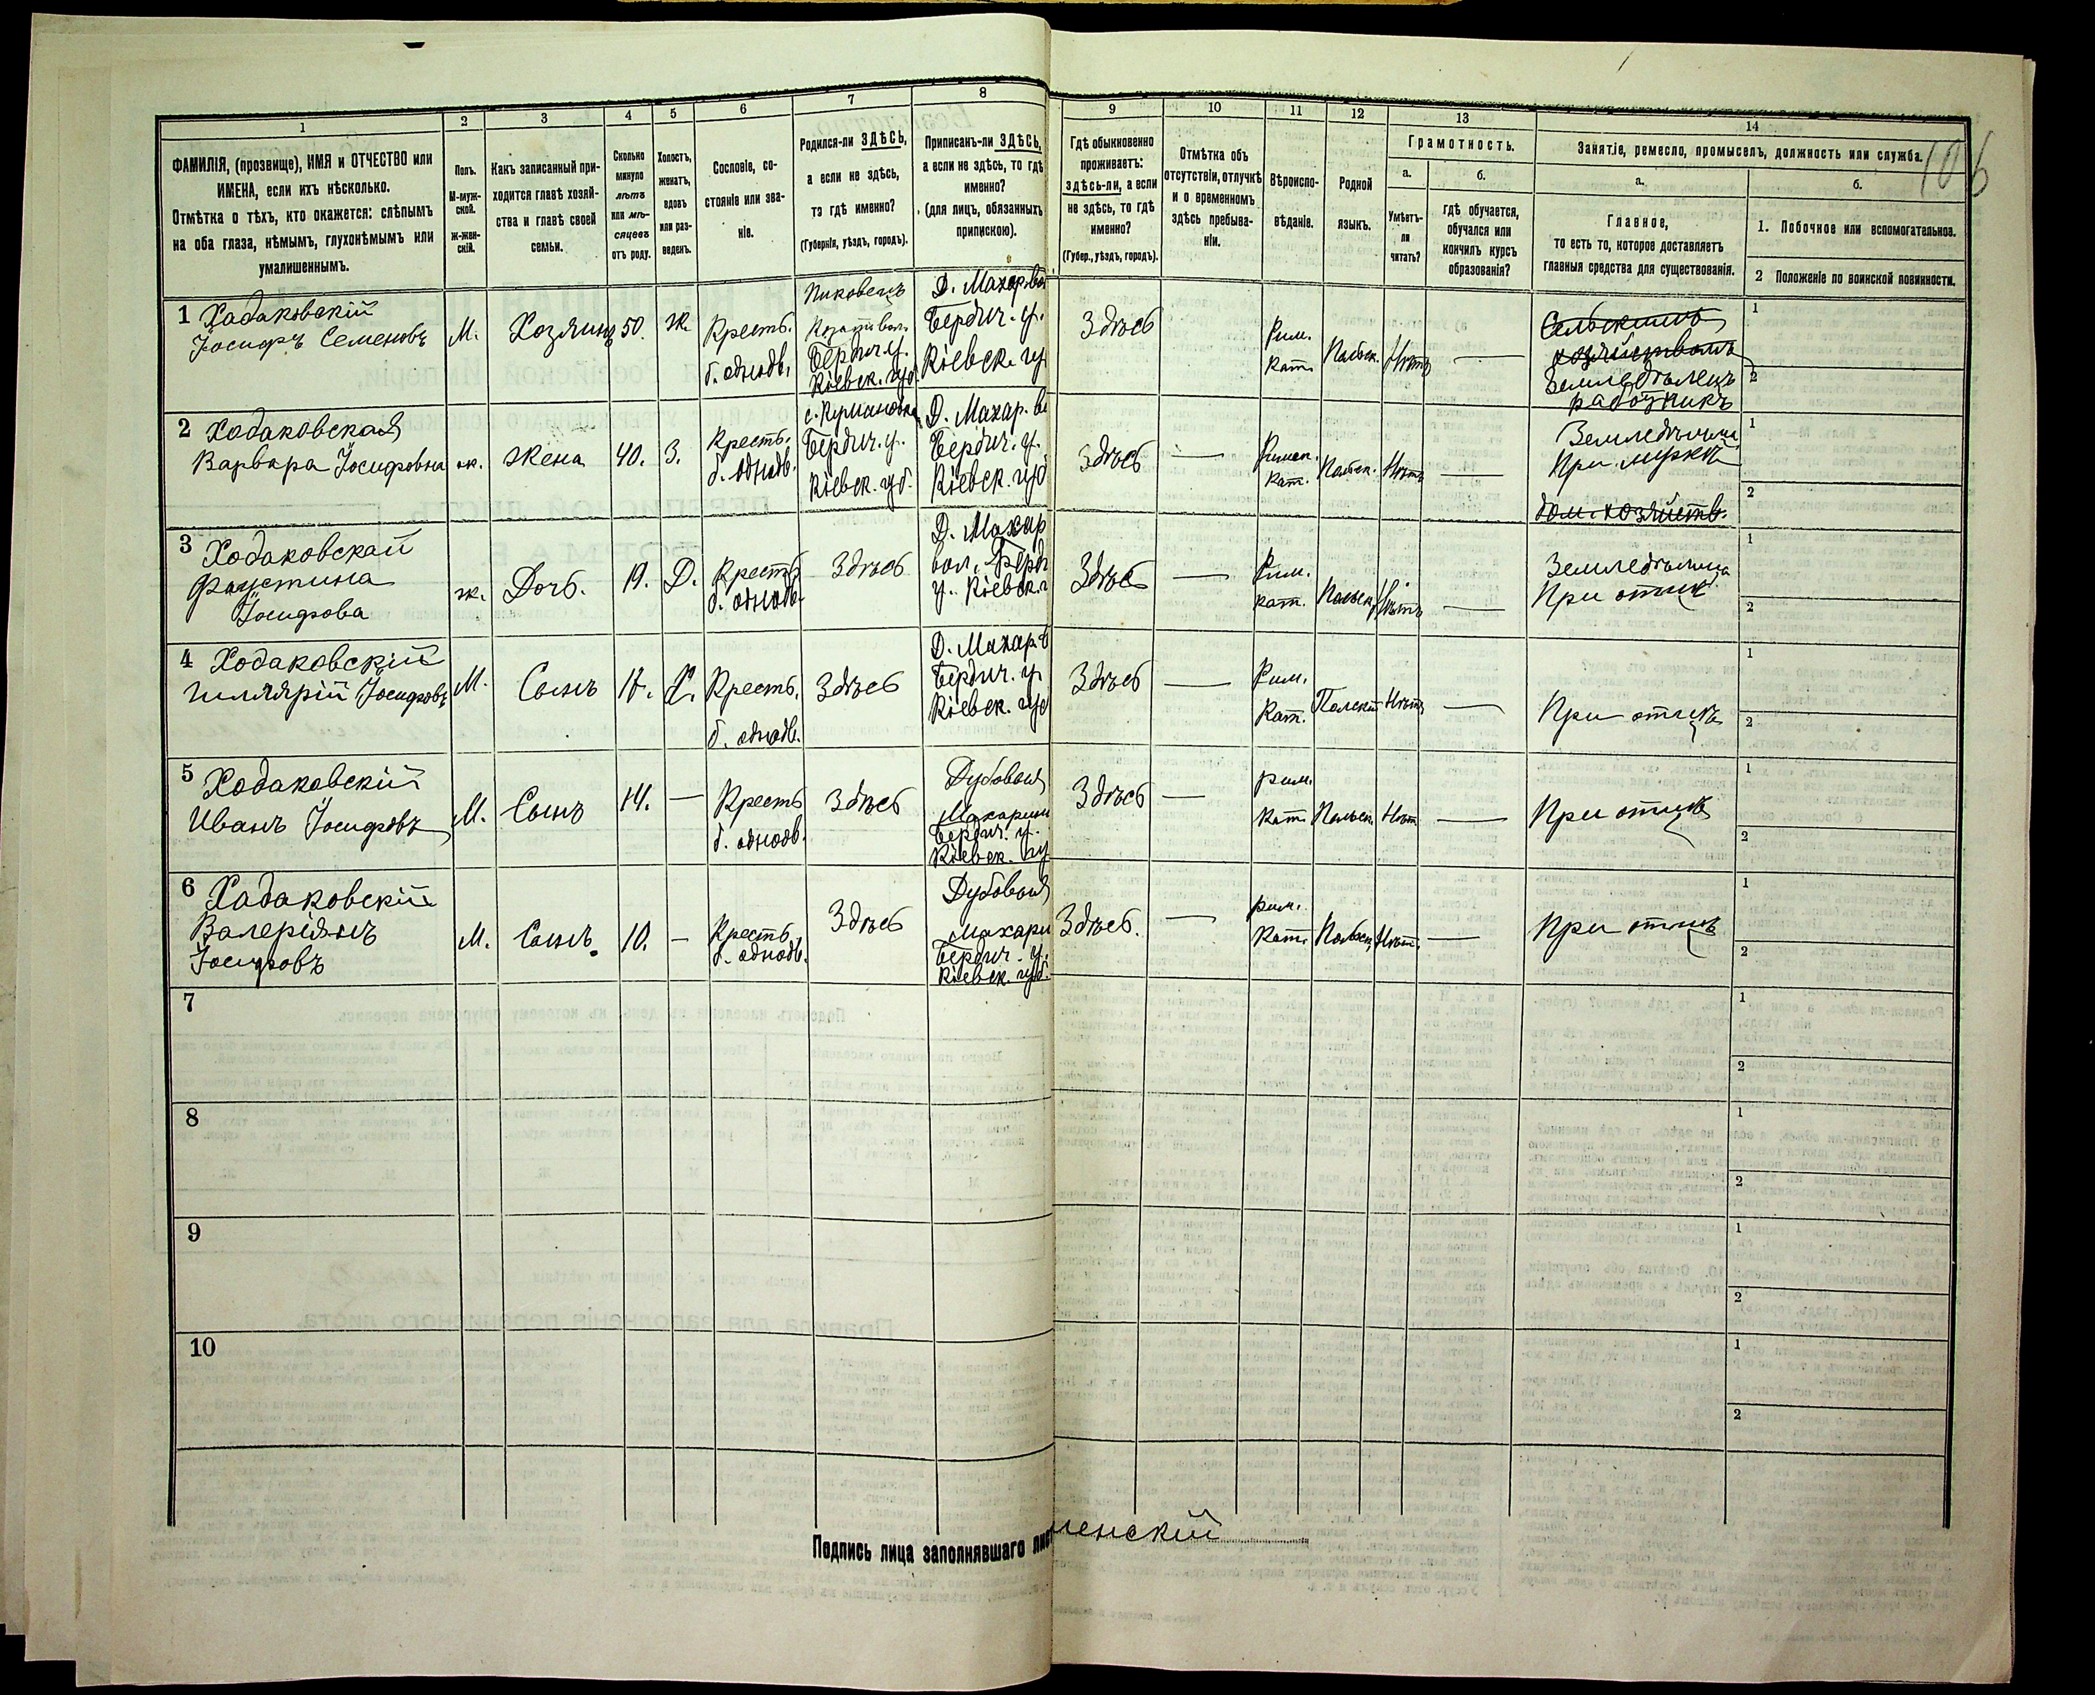 106
1
2
3
4
5
6
7
8
9
10
11
12
13
14
ФАМИЛІЯ, (прозвище), ИМЯ и ОТЧЕСТВО или
ИМЕНА, если ихъ нѣсколько.
Отмѣтка о тѣхъ, кто окажется: слѣпымъ
на оба глаза, нѣмымъ, глухонѣмымъ или
умалишеннымъ.
Полъ.
М-муж-
ской.
ж-жен-
скій.
Какъ записанный при-
ходится главѣ хозяй-
ства и главѣ своей
семьи.
Сколько
минуло
лѣтъ
или мѣ-
сяцевъ
отъ роду.
Холостъ,
женатъ,
вдовъ
или раз-
веденъ.
Сословіе, со-
стояніе или зва-
ніе.
Родился-ли ЗДѢСЬ,
а если не здѣсь,
то гдѣ именно?
(Губернія, уѣздъ, городъ).
Приписанъ-ли ЗДѢСЬ,
а если не здѣсь, то гдѣ
именно?
(для лицъ, обязанныхъ
припискою).
Гдѣ обыкновенно
проживаетъ:
здѣсь-ли, а если
не здѣсь, то гдѣ
именно?
(Губер., уѣздъ, городъ).
Отмѣтка объ
отсутствіи, отлучкѣ
и о временномъ
здѣсь пребыва-
ніи.
Вѣроиспо-
вѣданіе.
Родной
языкъ.
Грамотность.
а.
Умѣетъ-
ли
читать?
б.
гдѣ обучается,
обучался или
кончилъ курсъ
образованія?
Занятіе, ремесло, промыселъ, должность или служба.
а.
Главное,
то есть то, которое доставляетъ
главныя средства для существованія.
б.
1. Побочное или вспомогательное.
2 Положеніе по воинской повинности.
1 Ходаковскій
Іосифъ Семеновъ
М.
Хозяинъ
50.
Ж.
Крестьян.
б. однодв.
Бердич. у.
Кіевск. губ.
Д. Махар. вол
Бердич. у.
Кіевск. гу
Здѣсь
Рим.
Кат.
Польск.
Нѣтъ
—
Сельскимъ
хозяйствомъ
Земледѣлецъ
работникъ
1
2
2 Ходаковская
Варвара Іосифовна
ж.
Жена
40.
З.
Крестьян.
б. однодв.
Бердич. у.
Кіевск. губ.
Д. Махар. во
Бердич. у.
Кіевск. губ
Здѣсь
—
Римск.
Кат.
Польск.
Нѣтъ
—
При мужѣ
дом. хозяйств.
1
2
3 Ходаковская
Фаустина
Іосифова
ж.
Дочь.
19.
Д.
Крестьян
б. однодв.
Здѣсь
Д. Махар
вол. Берд
у. Кіевск. г
Здѣсь
—
Рим.
Кат.
Польск.
Нѣтъ
—
При отцѣ
1
2
4 Ходаковскій
Гиллярій Іосифовъ
М.
Сынъ
Х.
Крестьян.
б. однодв.
Здѣсь
Д. Махар. в
Бердич. у.
Кіевск. губ
Здѣсь
—
Рим.
Кат.
Польскій
Нѣтъ
—
При отцѣ
1
2
5 Ходаковскій
Иванъ Іосифовъ
М.
Сынъ
14.
—
Крестьян
б. однодв.
Здѣсь
Дубовая
Махарин
Бердич. у.
Кіевск. гу
Здѣсь
—
Рим.
Кат.
Польск.
Нѣт
—
При отцѣ
1
2
6 Ходаковскій
Валеріянъ
Іосифовъ
М.
Сынъ.
10.
—
Крестьян
б. однодв.
Здѣсь
Дубовая
Махари
Бердич. у.
Кіевск. губ.
Здѣсь.
—
Рим.
Кат.
Польск.
Нѣт.
—
При отцѣ
1
2
7
1
2
8
1
2
9
1
2
10
1
2
Подпись лица заполнявшаго лист
менскій